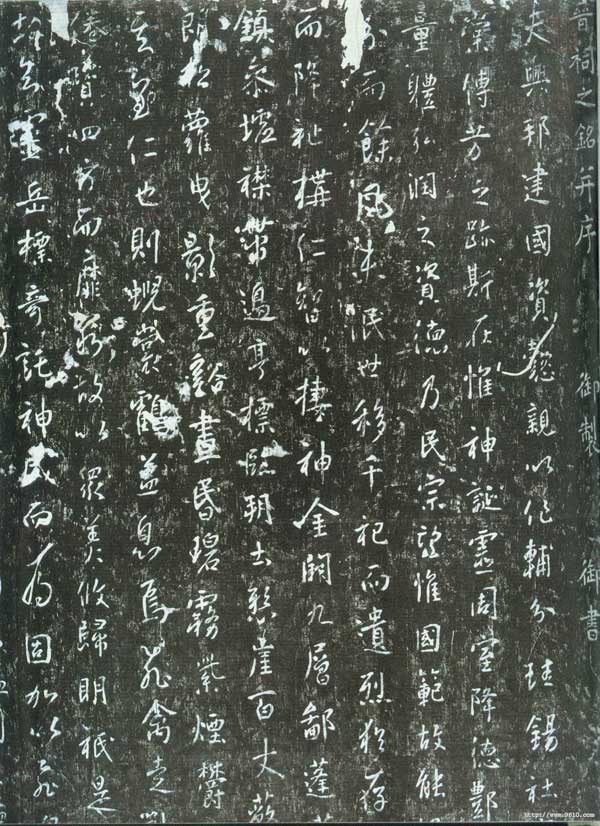 晉祠之銘并序 御製 御書
夫興邦建國資懿親以作輔分珪錫社
棠傳芳之跡斯在惟神誕靈周室降德酆
量體弘潤之資德乃民宗望惟國範故能
分而餘風未泯世移千祀而遺烈猶存
而降祉構仁智以棲神金闕九層鄙蓬
鎮參墟襟帶邊亭標臨朔土懸崖百丈蔽
朗松蘿曳影重谿晝昏碧霧紫煙鬱
至仁也則蜺裳鶴蓋息焉飛禽走
瀆四方而靡窮故以眾美攸歸明祇是
知靈岳標奇託神威而為固加以飛
http://www.9610.com